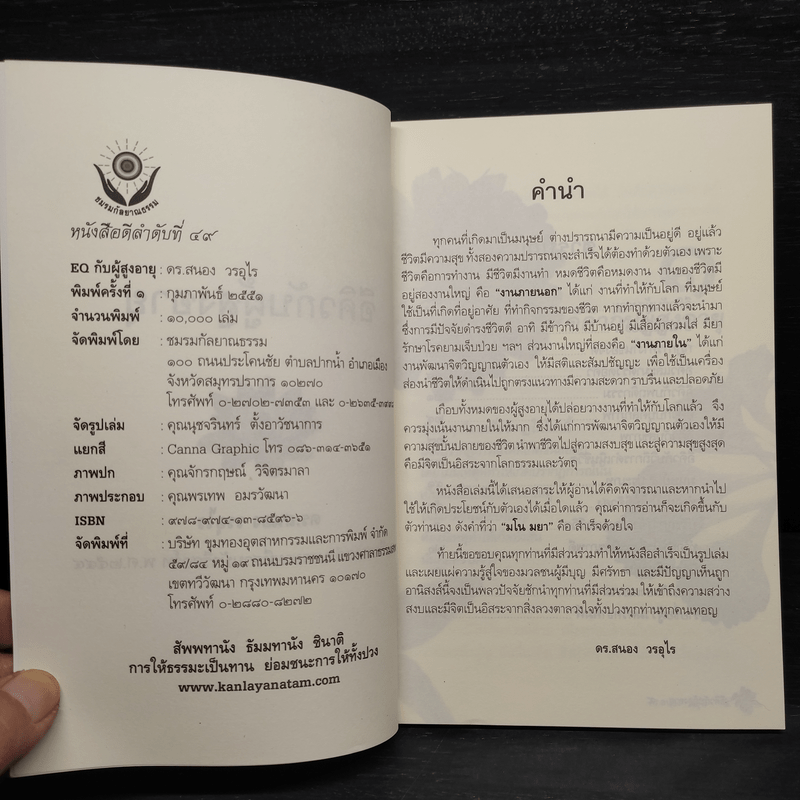 ชมรมกัลยาณธรรม
หนังสือดีลำดับที่ ๔๙
EQ กับผู้สูงอายุ : ดร.สนอง วรอุไร
พิมพ์ครั้งที่ ๑ : กุมภาพันธ์ ๒๕๕๑
จำนวนพิมพ์ : ๑๐,๐๐๐ เล่ม
จัดพิมพ์โดย : ชมรมกัลยาณธรรม
๑๐๐ ถนนประโคนชัย ตำบลปากน้ำ อำเภอเมือง
จังหวัดสมุทรปราการ ๑๐๒๗๐
โทรศัพท์ ๐-๒๗๐๒-๗๓๕๓ และ ๐-๒๖๓๕-๓๙๙๘
จัดรูปเล่ม : คุณนุชจรินทร์ ตั้งอาวัชนาการ
แยกสี : Canna Graphic โทร ๐๘๖-๓๑๔-๓๖๕๑
ภาพปก : คุณจักรกฤษณ์ วิจิตรมาลา
ภาพประกอบ : คุณพรเทพ อมรวัฒนา
ISBN : ๙๗๘-๙๗๔-๑๓-๘๕๙๖-๖
จัดพิมพ์ที่ : บริษัท ขุมทองอุตสาหกรรมและการพิมพ์ จำกัด
๕๙/๘๔ หมู่ ๑๙ ถนนบรมราชชนนี แขวงศาลาธรรมสพน์
เขตทวีวัฒนา กรุงเทพมหานคร ๑๐๑๗๐
โทรศัพท์ ๐-๒๘๘๐-๘๒๗๒
สัพพทานัง ธัมมทานัง ชินาติ
การให้ธรรมะเป็นทาน ย่อมชนะการให้ทั้งปวง
www.kanlayanatam.com
คำนำ
ทุกคนที่เกิดมาเป็นมนุษย์ ต่างปรารถนามีความเป็นอยู่ดี อยู่แล้ว
ชีวิตมีความสุข ทั้งสองความปรารถนาจะสำเร็จได้ต้องทำด้วยตัวเอง เพราะ
ชีวิตคือการทำงาน มีชีวิตมีงานทำ หมดชีวิตคือหมดงาน งานของชีวิตมี
อยู่สองงานใหญ่ คือ “งานภายนอก” ได้แก่ งานที่ทำให้กับโลก ที่มนุษย์
ใช้เป็นที่เกิดที่อยู่อาศัย ที่ทำกิจกรรมของชีวิต หากทำถูกทางแล้วจะนำมา
ซึ่งการมีปัจจัยดำรงชีวิตดี อาทิ มีข้าวกิน มีบ้านอยู่ มีเสื้อผ้าสวมใส่ มียา
รักษาโรคยามเจ็บป่วย ฯลฯ ส่วนงานใหญ่ที่สองคือ “งานภายใน” ได้แก่
งานพัฒนาจิตวิญญาณตัวเอง ให้มีสติและสัมปชัญญะ เพื่อใช้เป็นเครื่อง
ส่องนำชีวิตให้ดำเนินไปถูกตรงแนวทางมีความสะดวก ราบรื่น และปลอดภัย
เกือบทั้งหมดของผู้สูงอายุได้ปล่อยวางงานที่ทำให้กับโลกแล้ว จึง
ควรมุ่งเน้นงานภายในให้มาก ซึ่งได้แก่การพัฒนาจิตวิญญาณตัวเองให้มี
ความสุขบั้นปลายของชีวิต นำพาชีวิตไปสู่ความสงบสุข และสู่ความสุขสูงสุด
คือมีจิตเป็นอิสระจากโลกธรรมและวัตถุ
หนังสือเล่มนี้ได้เสนอสาระให้ผู้อ่านได้คิดพิจารณาและหากนำไป
ใช้ให้เกิดประโยชน์กับตัวเองได้เมื่อใดแล้ว คุณค่าการอ่านก็จะเกิดขึ้นกับ
ตัวท่านเอง ดังคำที่ว่า “มโน มยา” คือ สำเร็จด้วยใจ
ท้ายนี้ขอขอบคุณทุกท่านที่มีส่วนร่วมทำให้หนังสือสำเร็จเป็นรูปเล่ม
และเผยแผ่ความรู้สู่ใจของมวลชนผู้มีบุญ มีศรัทธา และมีปัญญาเห็นถูก
อานิสงส์นี้จงเป็นพลวปัจจัยชักนำทุกท่านที่มีส่วนร่วม ให้เข้าถึงความสว่าง
สงบและมีจิตเป็นอิสระจากสิ่งลวงตาลวงใจทั้งปวงทุกท่านทุกคนเทอญ
ดร.สนอง วรอุไร